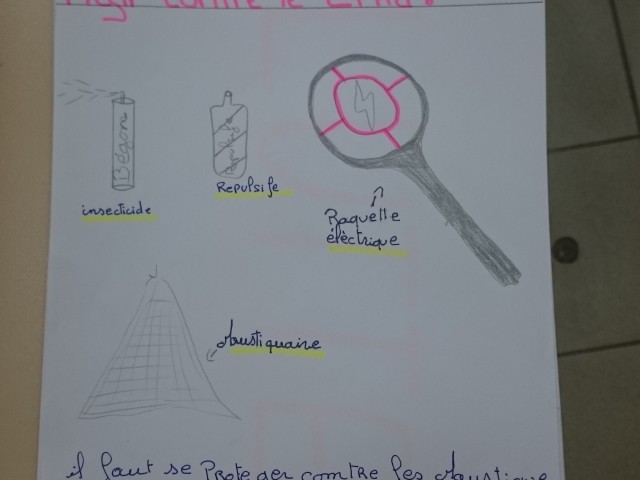 Agir contre le
Bégon
insecticide
Repulsife
Raquelle
éléctrique
Moustiquaire
il faut se Proteger contre les Moustique